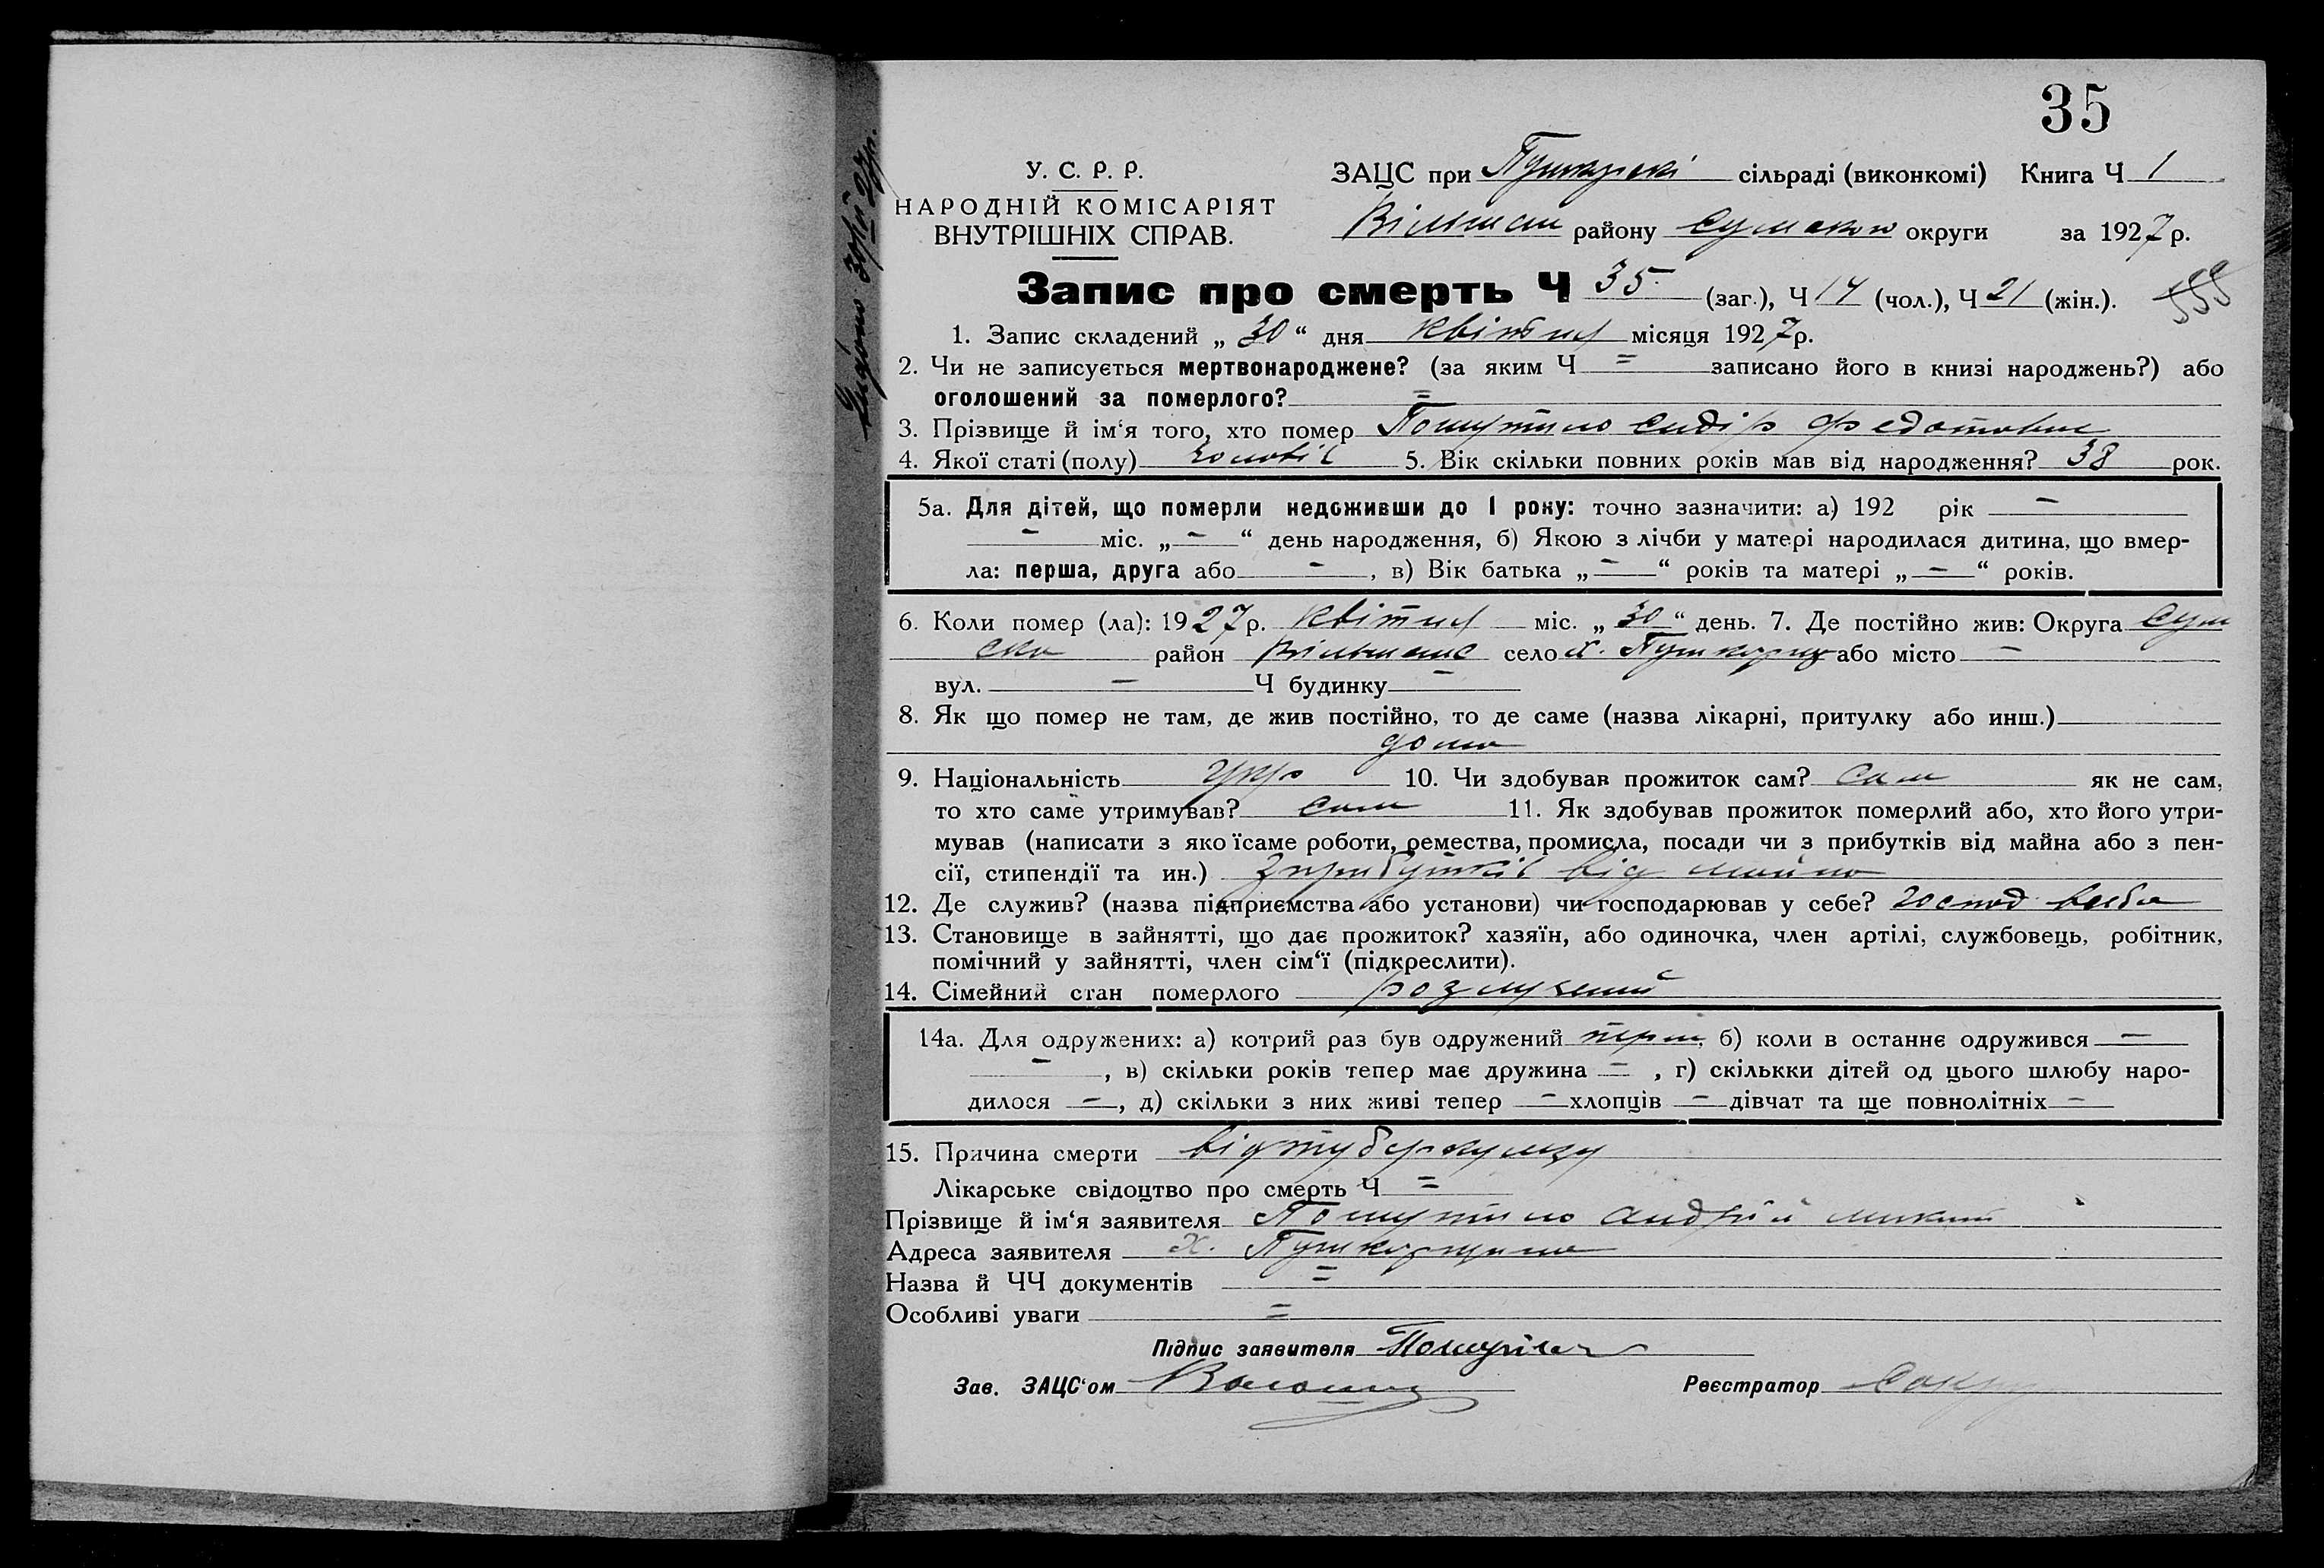 35
У. С. Р. Р.
НАРОДНІЙ КОМІСАРІЯТ
ВНУТРІШНІХ СПРАВ.
ЗАЦС при сільраді (виконкомі) Книга Ч 1
Вільшан району Сумської округи за 1927 р.
Запис про смерть Ч 35 (заг.), Ч 14 (чол.), Ч 21 (жін.).
1. Запис складений „ 30 “ дня квітня місяця 1927 р.
2. Чи не записується мертвонароджене? (за яким Ч = записано його в книзі народжень?) або
оголошений за померлого? =
3. Прізвище й ім‘я того, хто помер Сидір Федотович
4. Якої статі (полу) чоловіч 5. Вік скільки повних років мав від народження? 38 рок.
5а. Для дітей, що померли недоживши до 1 року: точно зазначити: а) 192 рік –
– міс. „ – “ день народження, б) Якою з лічби у матері народилася дитина, що вмер-
ла: перша, друга або – , в) Вік батька „ – “ років та матері „ – “ років.
6. Коли помер (ла): 1927 р. квітня міс. „ 30 “ день. 7. Де постійно жив: Округа Сум
ска район Вільшанс село х. Пушкарщ або місто –
вул. – Ч будинку –
8. Як що помер не там, де жив постійно, то де саме (назва лікарні, притулку або инш.)
дома
9. Національність укр 10. Чи здобував прожиток сам? сам як не сам,
то хто саме утримував? сам 11. Як здобував прожиток померлий або, хто його утри-
мував (написати з яко їсаме роботи, ремества, промисла, посади чи з прибутків від майна або з пен-
сії, стипендії та ин.) з прибутків від майна
12. Де служив? (назва підприємства або установи) чи господарював у себе? господ. в себе
13. Становище в зайнятті, що дає прожиток? хазяїн, або одиночка, член артілі, службовець, робітник,
помічний у зайнятті, член сім‘ї (підкреслити).
14. Сімейний стан померлого розлучений
14а. Для одружених: а) котрий раз був одружений перш, б) коли в останнє одружився –
– , в) скільки років тепер має дружина – , г) скількки дітей од цього шлюбу наро-
дилося – , д) скільки з них живі тепер – хлопців – дівчат та ще повнолітніх –
15. Причина смерти від туберкульозу
Лікарське свідоцтво про смерть Ч =
Прізвище й ім‘я заявителя Андрій Микит
Адреса заявителя х. Пушкарщина
Назва й ЧЧ документів =
Особливі уваги =
Підпис заявителя
Зав. ЗАЦС‘ом
Реєстратор